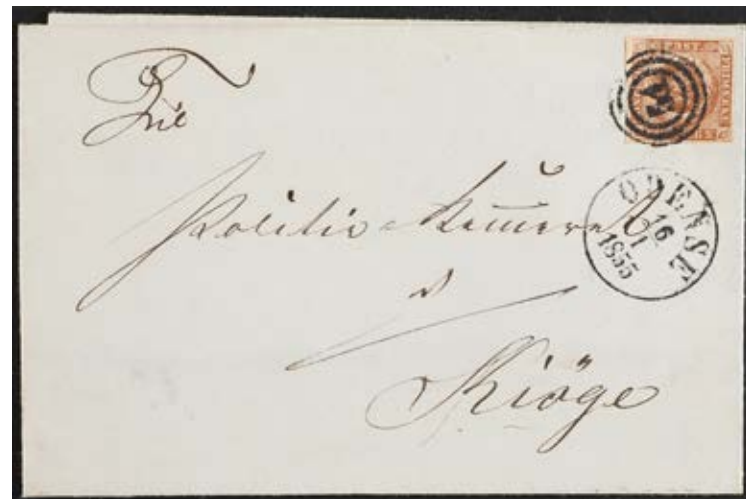 Politie-Kam̅eret
i
Kiöge
ODENSE
16
1
1855